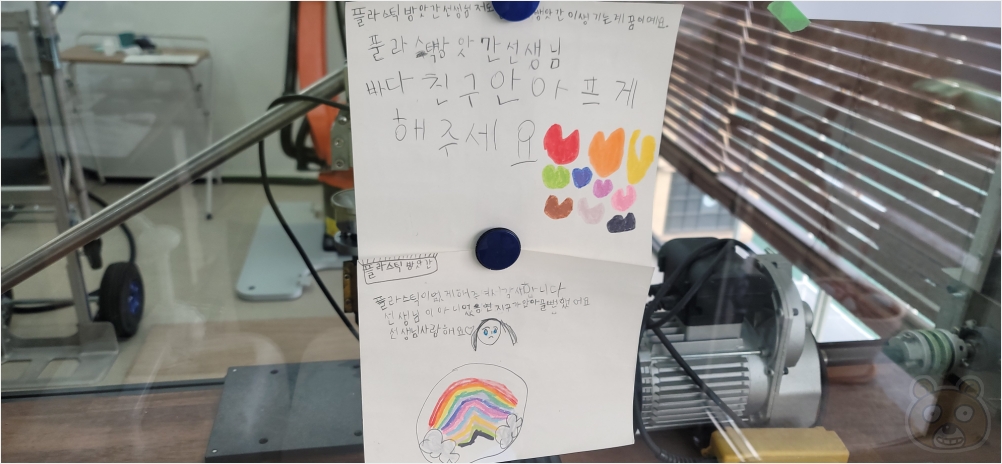 플라스틱 방앗간 선생님 저도 방앗간이 생기는게 꿈이에요
플라스틱방앗간선생님
바다친구안아프게
해주세요
플라스틱 방앗간
플라스틱이 없게해
선생님이 아니었으면 지구가
선생님사랑해요♡